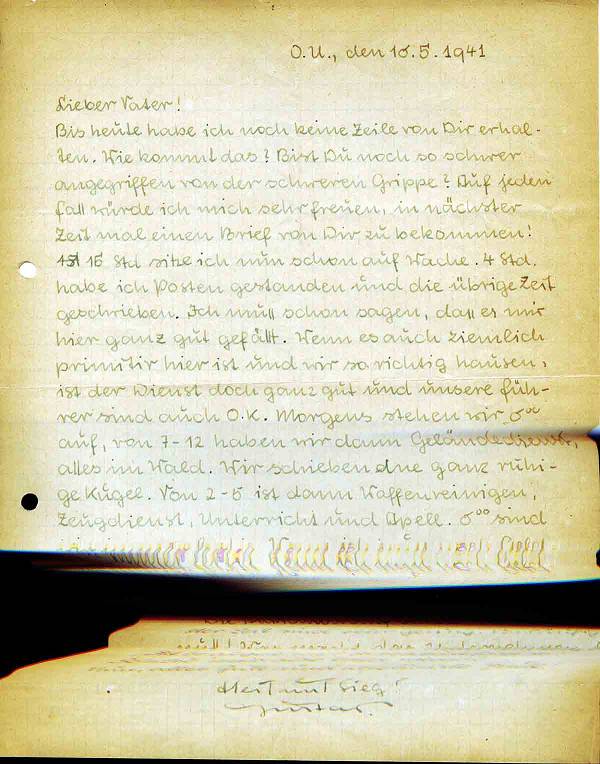 O.U., den 15.5.1941
Lieber Vater!
Bis heute habe ich noch keine Zeile von Dir erhal-
ten. Wie kommt das? Bist Du noch so schwer
angegriffen von der schweren Grippe? Auf jeden
fall würde ich mich sehr freuen, in nächster
Zeit mal einen Brief von Dir zu bekommen!
15 Std sitze ich nun schon auf Wache. 4 Std.
habe ich Posten gestanden und die übrige Zeit
geschrieben. Ich muß schon sagen, daß es mir
hier ganz gut gefällt. Wenn es auch ziemlich
primitiv hier ist und wir so richtig hausen,
ist der Dienst doch ganz gut und unsere füh-
rer sind auch O.K. Morgens stehen wir 5⁰⁰
auf, von 7-12 haben wir dann Geländedienst,
alles im Wald. Wir schieben eine ganz ruhi-
ge Kugel. Von 2-5 ist dann Waffenreinigen,
Zeugdienst, Unterricht und Apell. 5⁰⁰ sind
Heil und Sieg!
Gustav.